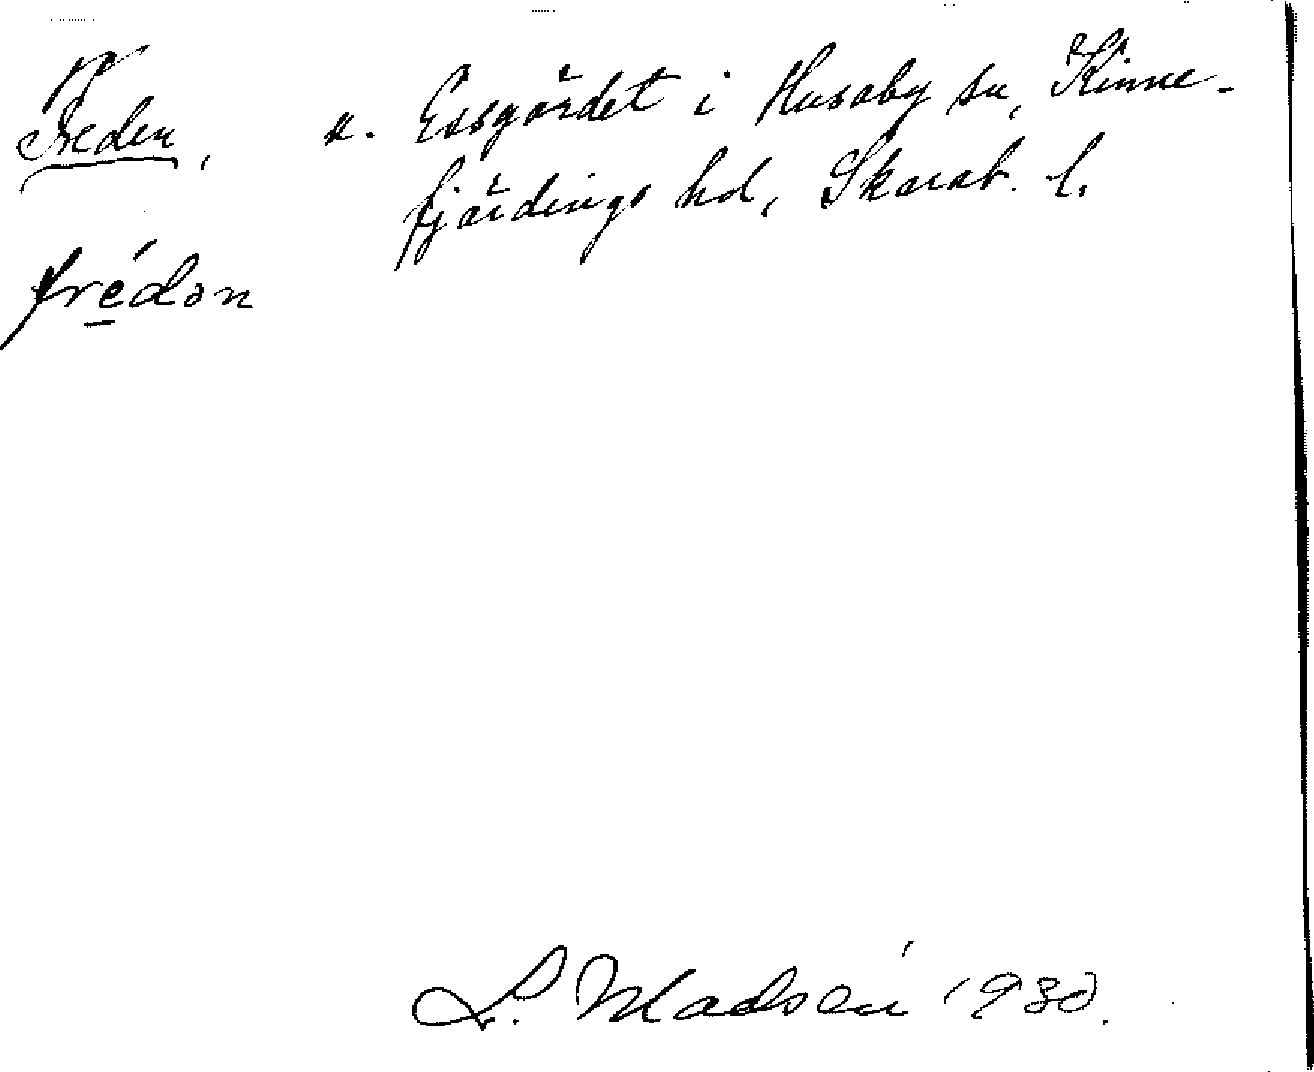 Freden, u. Essgärdet i Husaby sn, Kinne-
fjärdings hd, Skarab. l.
frédən
L. Madsén 1930.